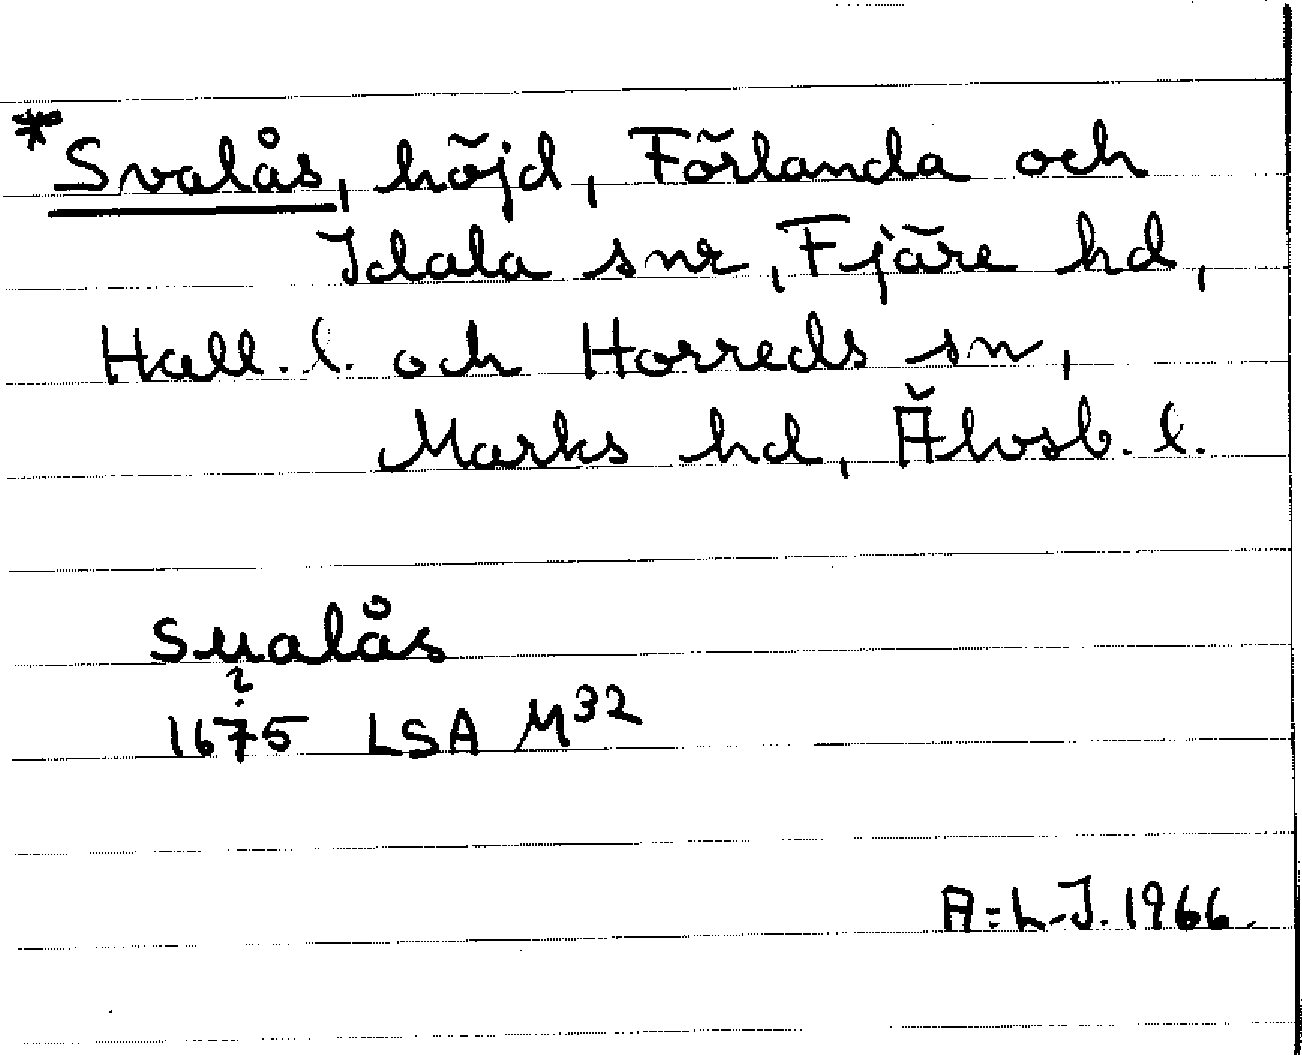 *Svalås, höjd, Förlanda och
Idala snr, Fjäre hd,
Hall. l. och Horreds sn,
Marks hd, Älvsb. l.
Sualås
?
1675 LSA M32
A-L-J. 1966.